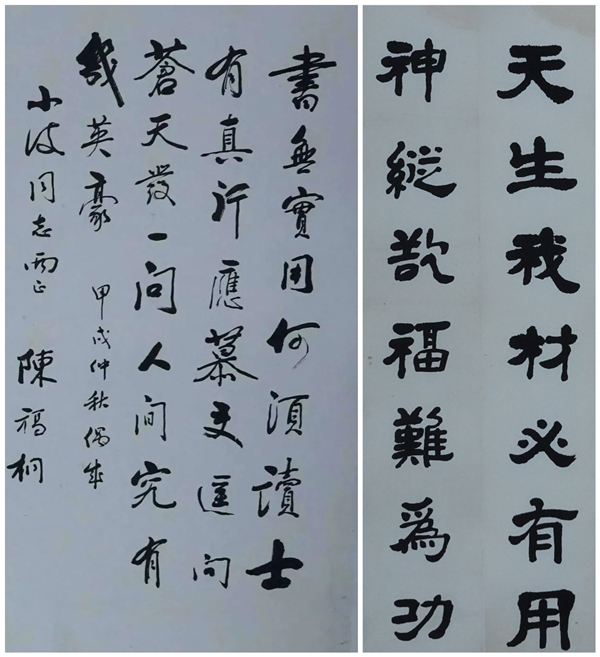 天生我材必有用
神縱欲福難為功
書無實用何須讀士
有真行應慕向
蒼天發一問人間究有
幾英豪 甲戌仲秋偶成
小波同志兩正 陳福桐